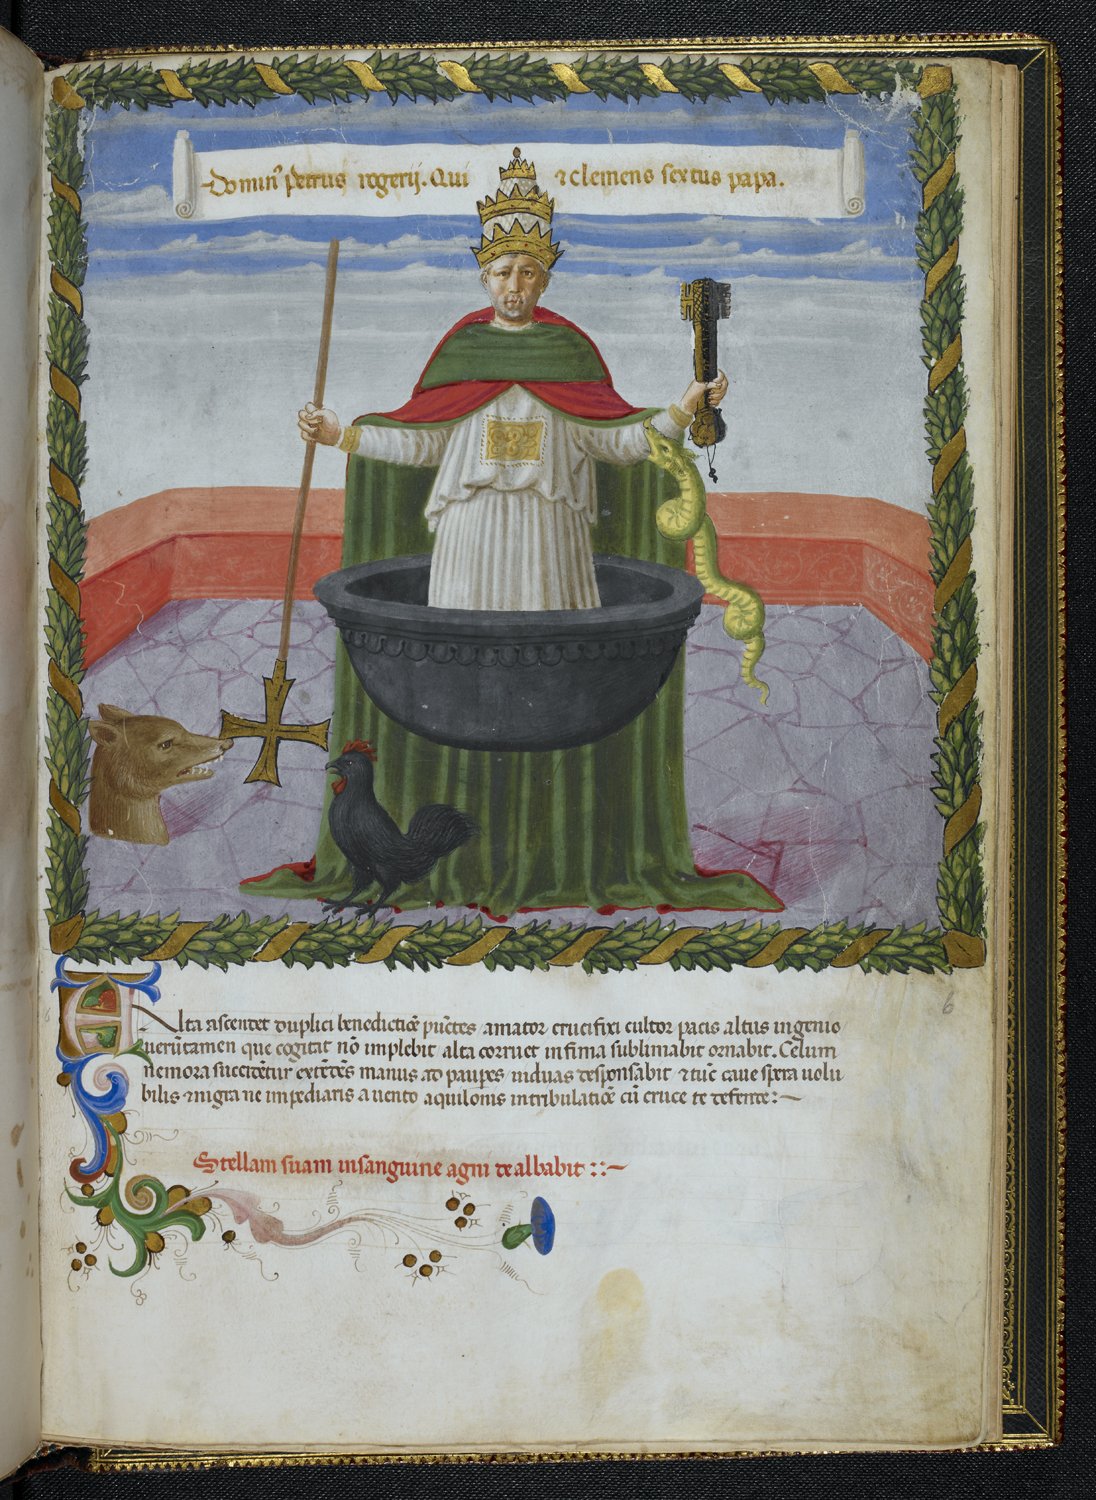 Domin⁹ petrus rogerij. Qui
⁊ clemens sextus papa.
Alta ascendet duplici benedictiōe pūctes amator crucifixi cultor pacis altus ingenio
uerūtamen que cogitat nō implebit alta corruet infima sublimabit ornabit. Celum
nemora succidētur extēdēs manus ad paupes induas desponsabit ⁊ tūc caue spera uolu
bilis ⁊ migra ne impediaris a uento aquilonis in tribulatiōe cū cruce te defende:~
Stellam suam in sanguine agni dealbabit ::~
6